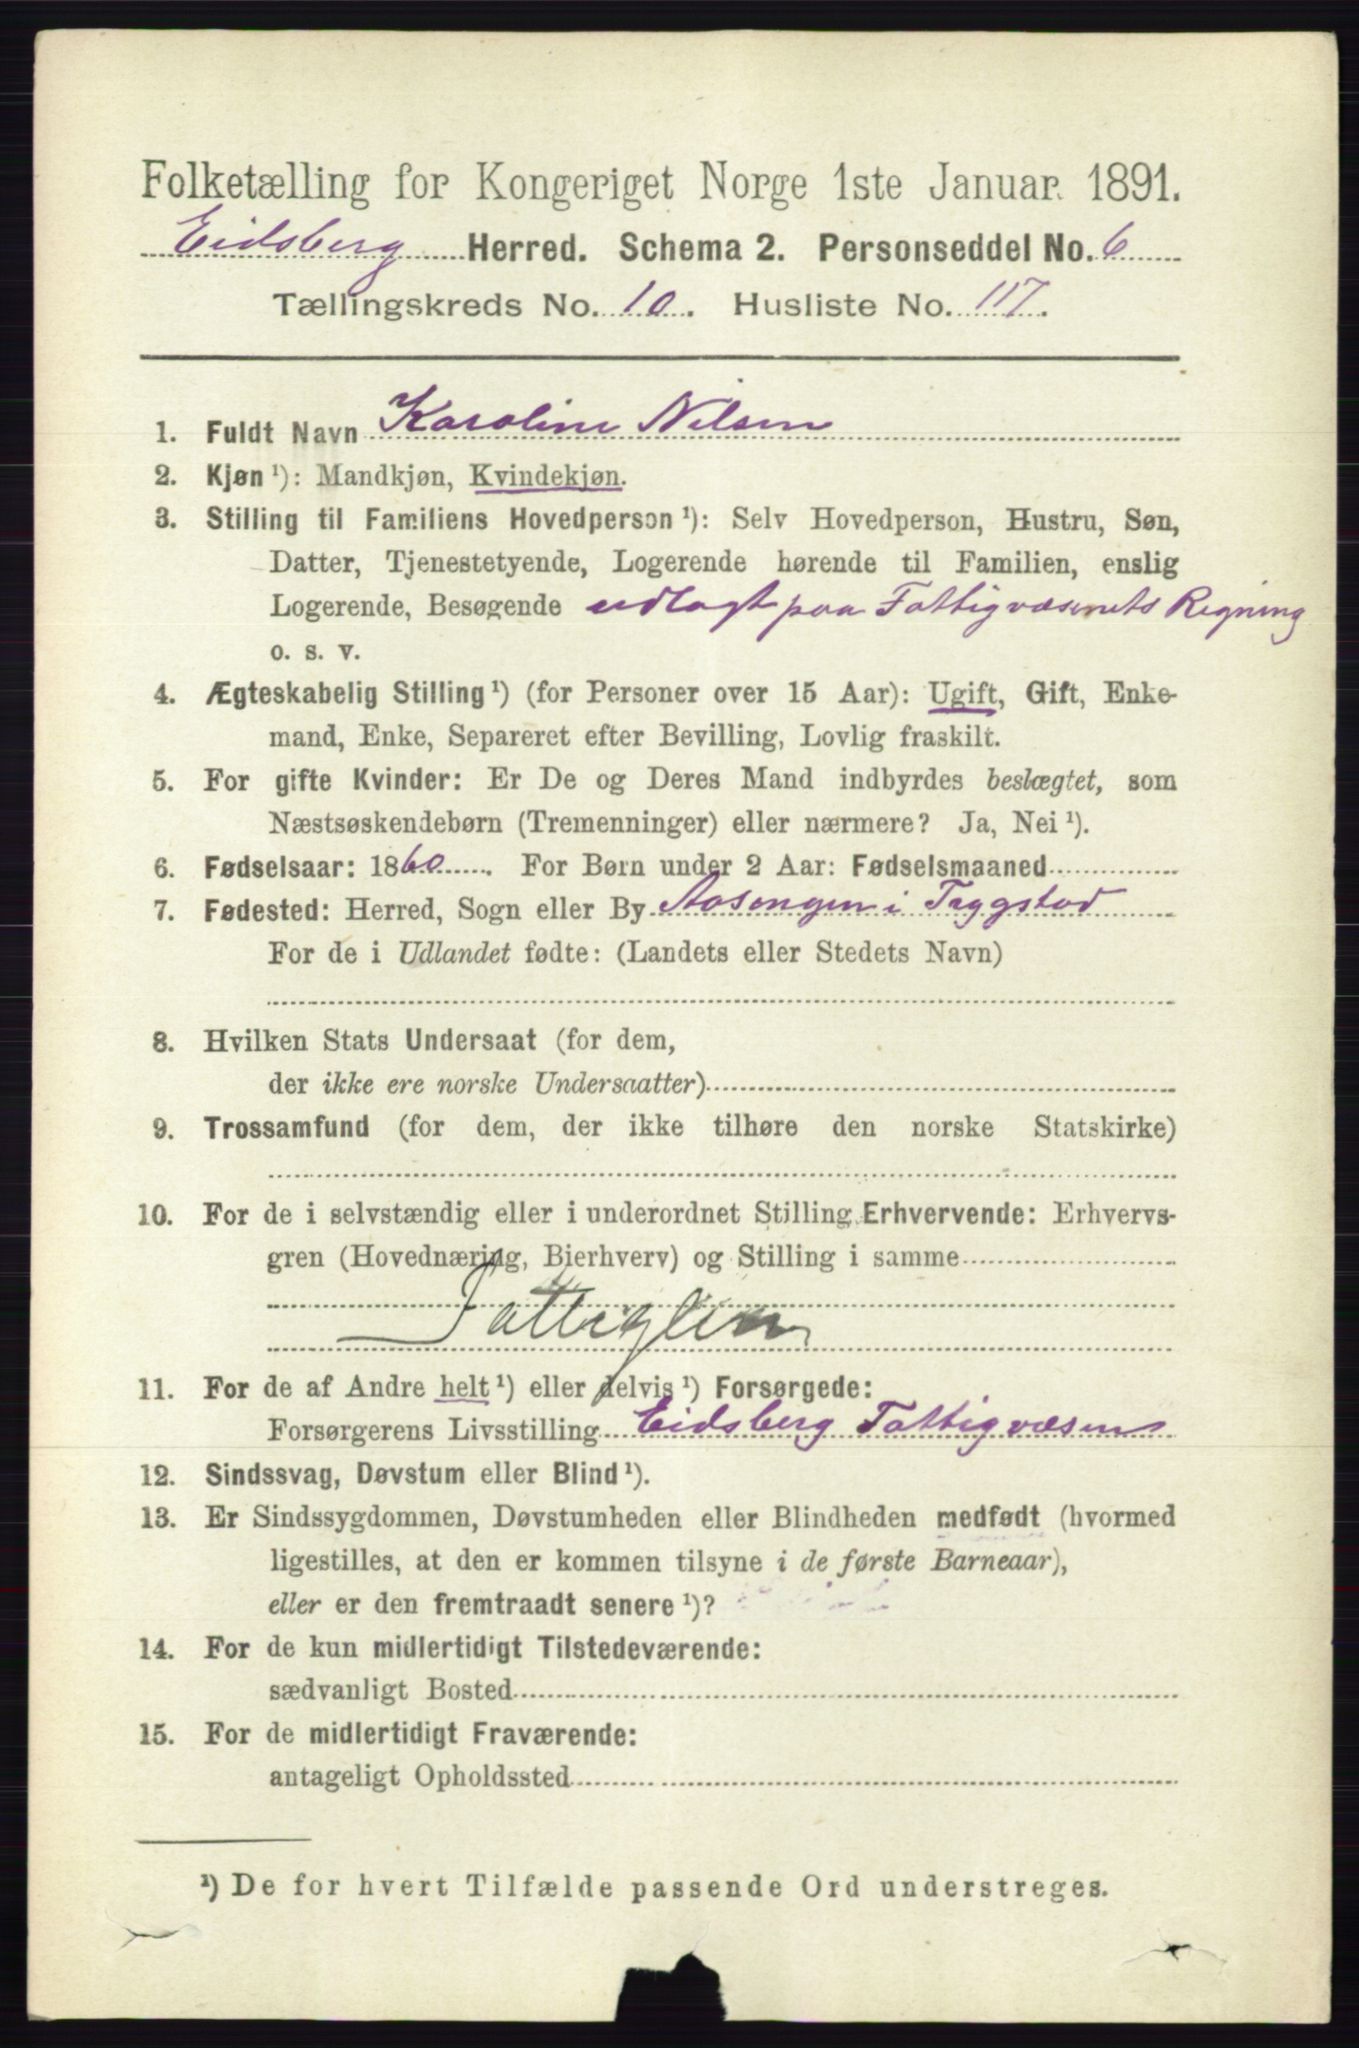 Folketælling for Kongeriget Norge 1ste Januar 1891.
Eidsberg Herred. Schema 2. Personseddel No. 6
Tællingskreds No. 10. Husliste No. 117.
1. Fuldt Navn Karoline Nilsen
2. Kjøn ¹): Mandkjøn, Kvindekjøn.
3. Stilling til Familiens Hovedperson ¹): Selv Hovedperson, Hustru, Søn,
Datter, Tjenestetyende, Logerende hørende til Familien, enslig
Logerende, Besøgende udlagt paa Fattigvæsenets Regning
o. s. v.
4. Ægteskabelig Stilling ¹) (for Personer over 15 Aar): Ugift, Gift, Enke-
mand, Enke, Separeret efter Bevilling, Lovlig fraskilt.
5. For gifte Kvinder: Er De og Deres Mand indbyrdes beslægtet, som
Næstsøskendebørn (Tremenninger) eller nærmere? Ja, Nei ¹).
6. Fødselsaar: 1860. For Børn under 2 Aar: Fødselsmaaned
7. Fødested: Herred, Sogn eller By Aasengen i Trygstad
For de i Udlandet fødte: (Landets eller Stedets Navn)
8. Hvilken Stats Undersaat (for dem,
der ikke ere norske Undersaatter)
9. Trossamfund (for dem, der ikke tilhøre den norske Statskirke)
10. For de i selvstændig eller i underordnet Stilling Erhvervende: Erhvervs-
gren (Hovednæring, Bierhverv) og Stilling i samme
Fattiglem
11. For de af Andre helt ¹) eller delvis ¹) Forsørgede:
Forsørgerens Livsstilling Eidsberg Fattigvæsen
12. Sindssvag, Døvstum eller Blind ¹).
13. Er Sindssygdommen, Døvstumheden eller Blindheden medfødt (hvormed
ligestilles, at den er kommen tilsyne i de første Barneaar),
eller er den fremtraadt senere ¹)?
14. For de kun midlertidigt Tilstedeværende:
sædvanligt Bosted
15. For de midlertidigt Fraværende:
antageligt Opholdssted
¹) De for hvert Tilfælde passende Ord understreges.